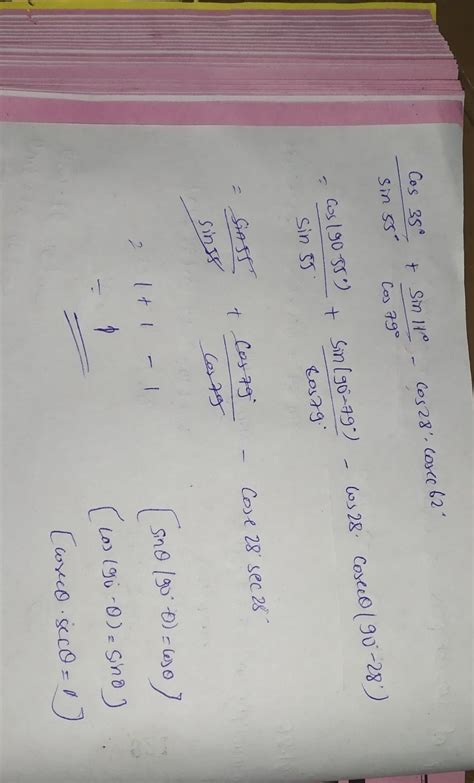 Cos 35° / Sin 55° + Sin 11° / Cos 79° - Cos 28° . Cosec 62°
= Cos(90-55°) / Sin 55 + Sin(90-79°) / Cos 79° - Cos 28° . Cosecθ(90-28°)
= Sin 55 / Sin 55 + Cos 79° / Cos 79 - Cosec 28° sec 28° [sinθ(90°-θ) = cosθ]
= 1 + 1 - 1 [cos(90-θ) = sinθ]
= 1 [cosecθ . secθ = 1]